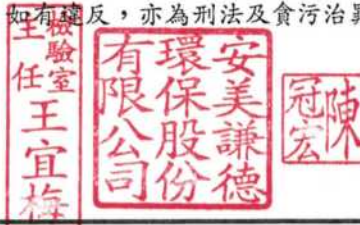 如有違反，亦為刑法及貪污治罪
檢驗室
主任王宜梅
安美謙德
環保股份
有限公司
陳冠宏